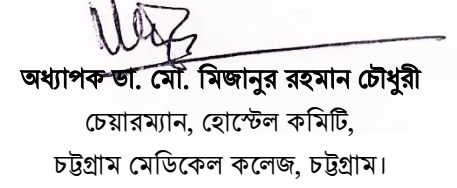 অধ্যাপক ডা. মো. মিজানুর রহমান চৌধুরী
চেয়ারম্যান, হোস্টেল কমিটি,
চট্টগ্রাম মেডিকেল কলেজ, চট্টগ্রাম।